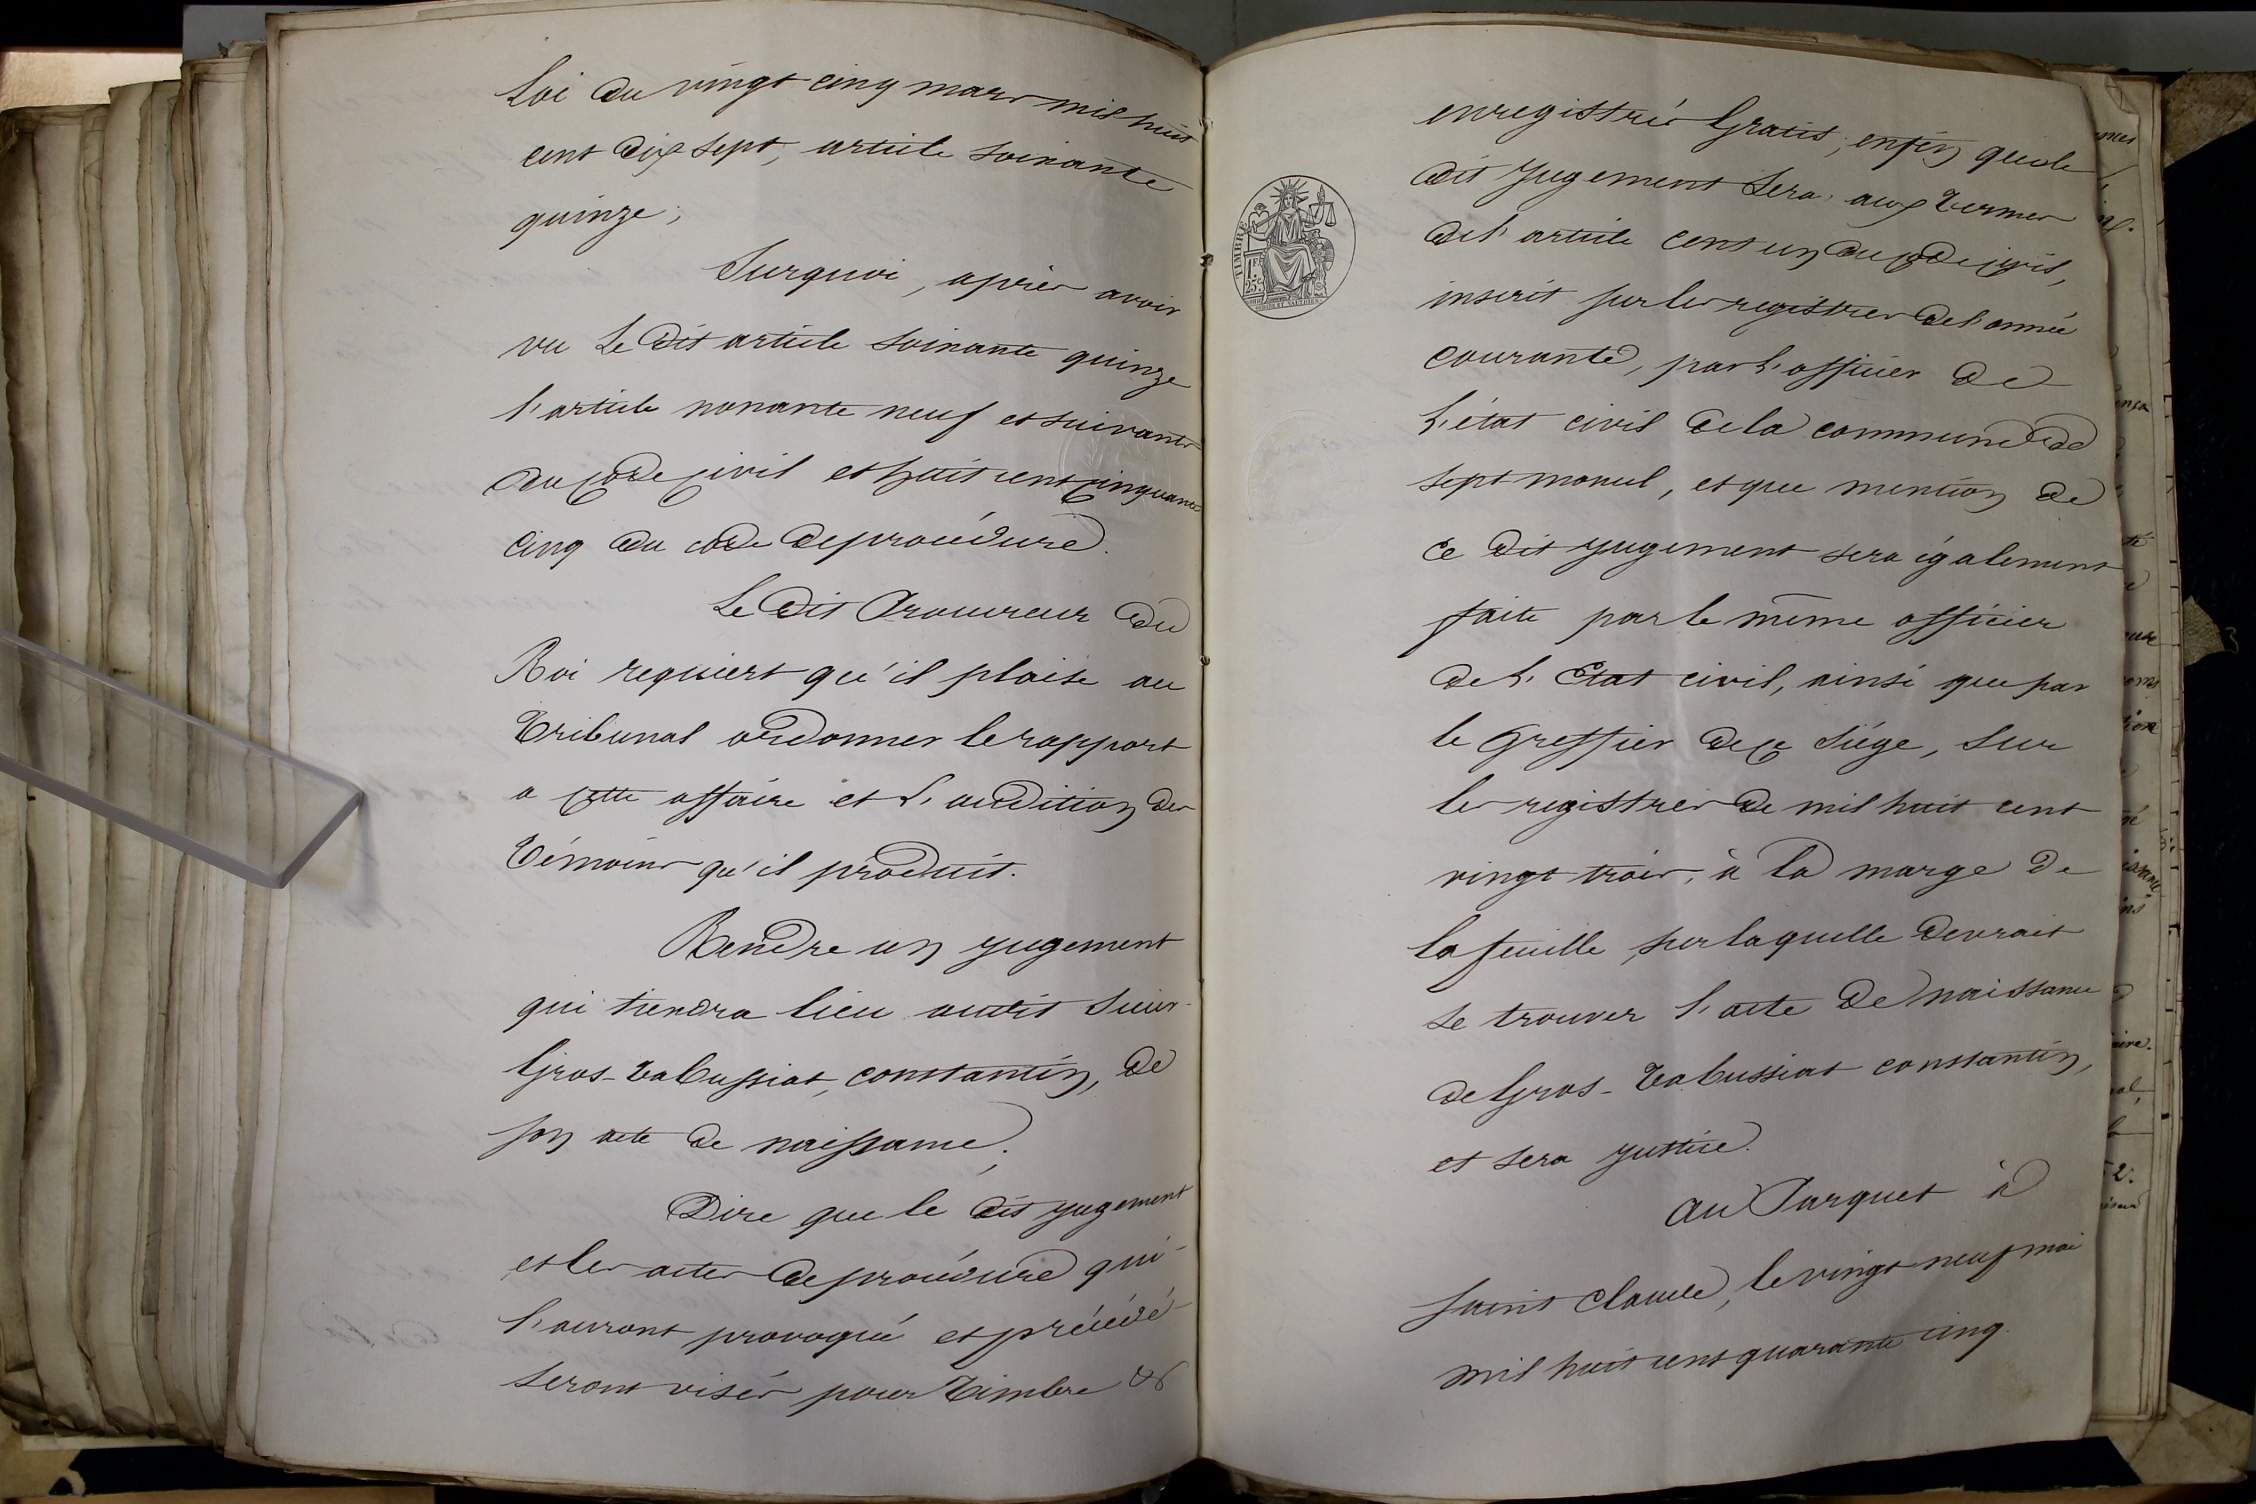 Loi du vingt cinq mars mil huit
cent dix sept, article soixante
quinze;
Surquoi, après avoir
vu Le dit article soixante quinze
l'article nonante neuf et suivants
du Code Civil et huit cent cinquante
cinq du code de procédure.
Le dit Procureur du
Roi requiert qu'il plaise au
Tribunal ordonner le rapport
a cette affaire et L'audition des
Témoins qu'il produit.
Rendre un jugement
qui tiendra lieu audit Sieur
Gros-Tabussiat, constantin, de
son acte de naissance;
Dire que le dit jugement
et les actes de procédure qui
l'auront provoqué et précédé
seront visés pour Timbre &
enregistrés Gratis; enfin que le
dit jugement sera, aux Termes
de l'article cent un du Code Civil,
inscrit sur les registres de l'année
courante, par L'officier de
L'état civil de la commune de
septmoncel, et que mention de
ce dit jugement sera également
faite par le même officier
de L'Etat civil, ainsi que par
le Greffier de ce Siége, sur
les registres de mil huit cent
vingt trois, à la marge de
la feuille sur laquelle devrait
se trouver l'acte de naissance
de Gros-Tabussiat constantin,
et sera justice.
au Parquet à
Saint Claude, le vingt neuf mai
mil huit cent quarante cinq.
TIMBRE
1F
25c